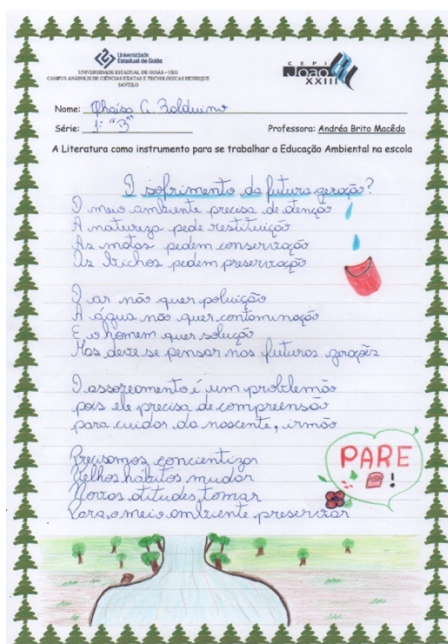 Universidade
Estadual de Goiás
UNIVERSIDADE ESTADUAL DE GOIÁS – UEG
CAMPUS ANÁPOLIS DE CIÊNCIAS EXATAS E TECNOLÓGICAS HENRIQUE
SANTILLO
CEPI
João
XXIII
Nome: G. Balduino
Série: 1ª "B"
Professora: Andréa Brito Macêdo
A Literatura como instrumento para se trabalhar a Educação Ambiental na escola
O sofrimento da futura geração?
O meio ambiente precisa de atenção
A natureza pede restituição
As matas pedem conservação
Os bichos pedem preservação
O ar não quer poluição
A água não quer contaminação
E o homem quer solução
Mas deve se pensar nas futuras gerações
O assoreamento é um problemão
pois ele precisa de compreensão
para cuidar da nascente, irmão
Precisamos concientizar
Velhos hábitos mudar
Novas atitudes, tomar
Para o meio ambiente preservar
PARE
!